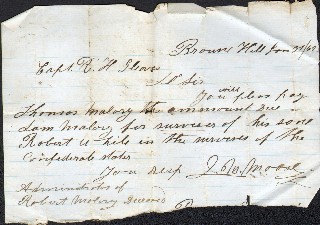 Brouns Hill Jan 21/62
Capt. R. H.
Sir
will
You pleas pay
Thomas Malory the ammount due
Malory for survises of his son
Robert while in the survises of the
Confederate states
Your resp J. W. Moore
Admindrator of
Robert Malory